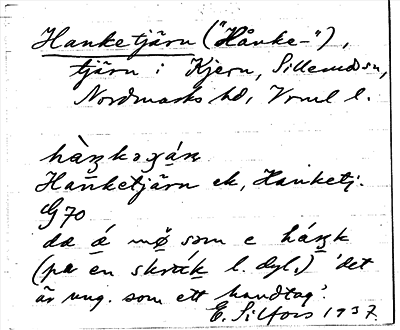 Hanketjärn ("Hånke-"),
tjärn i Kjern, Sillerudssn,
Nordmarks hd, Vrml l.
Hanketjärn ek, Hanketj.
G 70
da æ mø som e
(på en skråk l. dyl.) 'det
är ung. som ett handtag'.
E. Silfors 1937